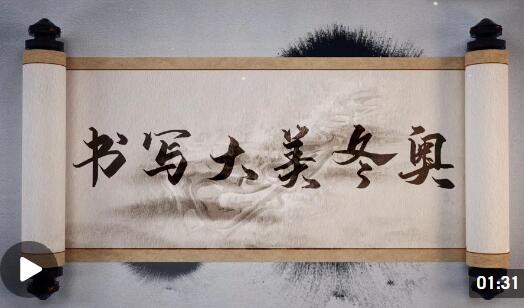 书写大美冬奥
01:31